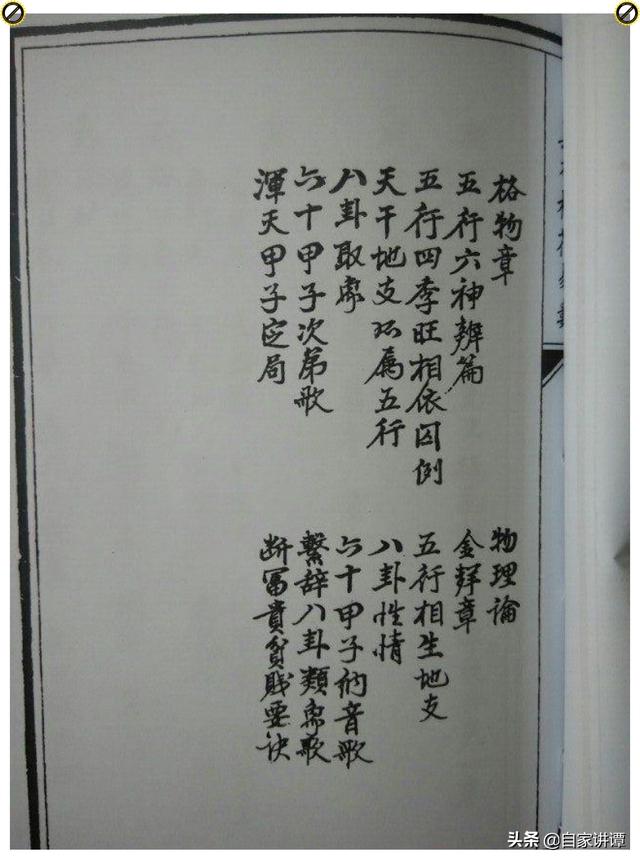 格物章
物理論
五行六神辨篇
金章
五行四季旺相依囚例
五行相生地支
天干地支所属五行
八卦性情
八卦取象
六十甲子納音歌
六十甲子次第歌
繫辞八卦類象歌
渾天甲子定局
断冨貴貧賤要诀
头条 @自家讲谭